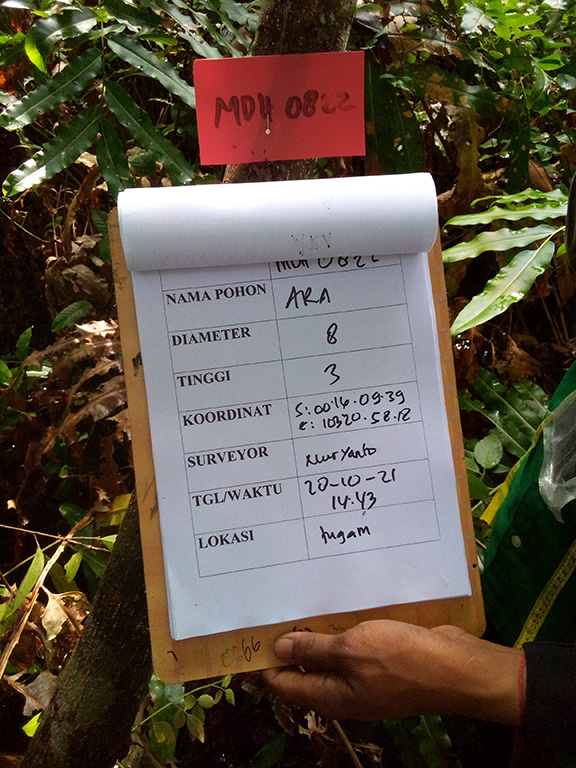 MDH 0822
MDH 0822
NAMA POHON ARA
DIAMETER 8
TINGGI 3
KOORDINAT S: 00.14.09.39
E: 10320.58.18
SURVEYOR Nuryanto
TGL/WAKTU 20-10-21
14.43
LOKASI tugam